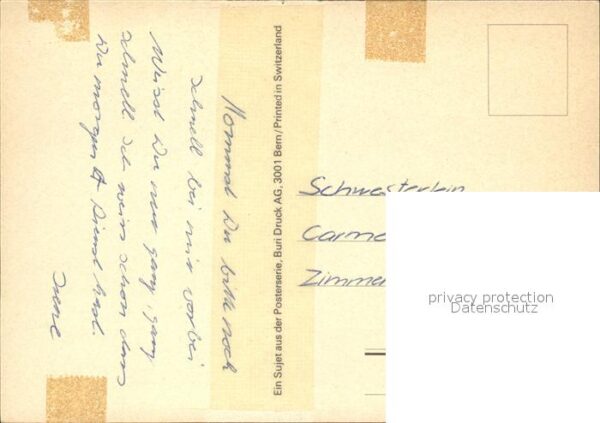 Kommst Du bitte noch
schnell bei mir vorbei
Weisst Du nur ganz, ganz
schnell ich weiss schon dass
Du morgen Dienst hast.
Irene
Ein Sujet aus der Posterserie, Buri Druck AG, 3001 Bern/Printed in Switzerland
Schwesterlein
Carme
Zimmer
privacy protection
Datenschutz